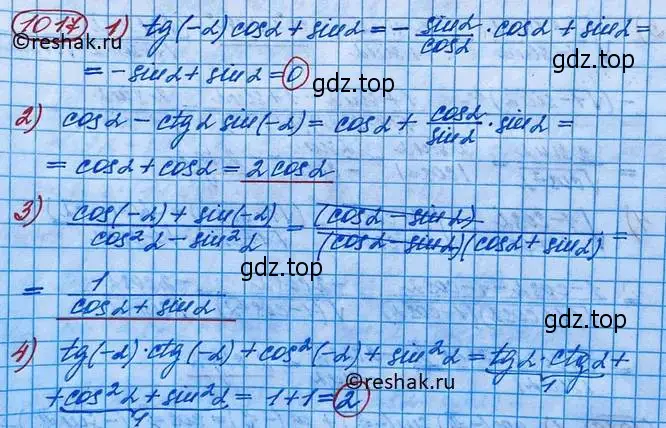 1017 1) tg(-α) cosα + sinα = - sinα/cosα · cosα + sinα =
= -sinα + sinα = 0
gdz.top
2) cosα - ctgα sin(-α) = cosα + cosα/sinα · sinα =
gdz.top
= cosα + cosα = 2cosα
3) (cos(-α) + sin(-α))/(cos²α - sin²α) = (cosα - sinα)/((cosα - sinα)(cosα + sinα)) =
gdz.top
= 1/(cosα + sinα)
gdz.top
4) tg(-α)·ctg(-α) + cos²(-α) + sin²α = tgα·ctgα +
1
+ cos²α + sin²α = 1+1 = 2
1
©Reshak.ru
gdz.top